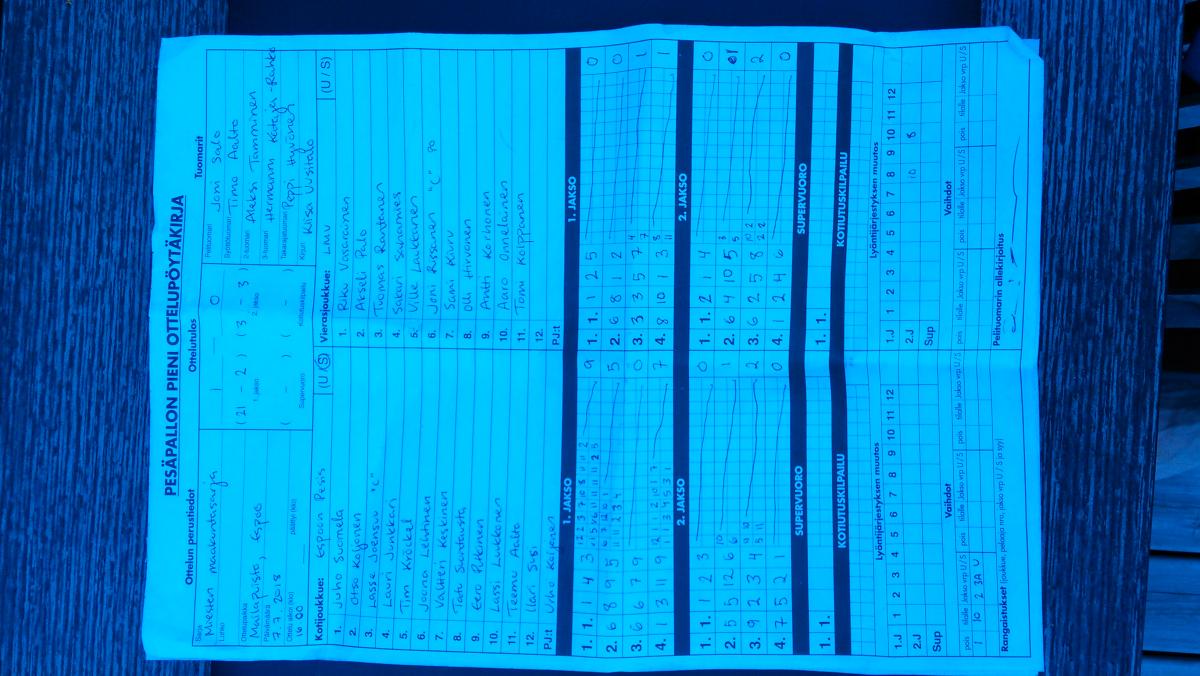 PESÄPALLON PIENI OTTELUPÖYTÄKIRJA
Ottelun perustiedot
Ottelutulos
Tuomarit
Sarja
Miesten maakuntasarja
Lohko
Ottelupaikka
Mailapuisto, Espoo
Päivämäärä
7.7.2018
Ottelu alkoi (klo)
16 00
päättyi (klo)
1 - 0
(21 - 2) (3 - 3)
1. jakso
2. jakso
( - ) ( - )
Supervuoro
Kotiutuskilpailu
Pelituomari
Joni Salo
Syöttötuomari
Timo Aalto
2-tuomari
Aleksi Tamminen
3-tuomari
Hermanni Kataja-Rahko
Takarajatuomari
Peppi Hyvönen
Kirjuri
Kaisa Uusitalo
Kotijoukkue: Espoon Pesis (U/S)
1. Juho Suomela
2. Otso Kaijonen
3. Lasse Joensuu "C"
4. Lauri Junkkari
5. Tim Kröckel
6. Joona Lehtinen
7. Valtteri Keskinen
8. Taatu Suntausta
9. Eero Pitkinen
10. Lassi Luukkonen
11. Teemu Aalto
12. Ilari Susi
PJ:t Urho Kaijonen
Vierasjoukkue: LMV (U/S)
1. Riku Vasarainen
2. Akseli Palo
3. Tuomas Rantanen
4. Sakari Saunamies
5. Ville Laukkanen
6. Joni Rissanen "C" 90
7. Sami Kauru
8. Olli Hirvonen
9. Antti Korhonen
10. Aaro Onnelainen
11. Tomi Kolppanen
12.
PJ:t
1. JAKSO
1. JAKSO
1. 1. 1 4 3
9
2. 6 8 9 5
5
3. 6 6 7 9
0
4. 1 3 11 9
7
1. 1. 1 2 5
0
2. 6 8 1 2
0
3. 3 3 5 7
1
4. 8 10 1 3
1
2. JAKSO
2. JAKSO
1. 1. 1 2 3
0
2. 5 5 12 6
1
3. 9 2 3 4
2
4. 7 5 2 1
0
1. 1. 2 1 4
0
2. 6 4 10 5
1
3. 6 2 5 8
2
4. 1 2 4 6
0
SUPERVUORO
SUPERVUORO
1. 1.
1. 1.
KOTIUTUSKILPAILU
KOTIUTUSKILPAILU
Lyöntijärjestyksen muutos
1.J 1 2 3 4 5 6 7 8 9 10 11 12
2.J
Sup
Lyöntijärjestyksen muutos
1.J 1 2 3 4 5 6 7 8 9 10 11 12
2.J 10 8
Sup
Vaihdot
pois tilalle Jakso vrp U/S pois tilalle Jakso vrp U/S pois tilalle Jakso vrp U/S
1 10 2 3A U
Vaihdot
pois tilalle Jakso vrp U/S pois tilalle Jakso vrp U/S pois tilalle Jakso vrp U/S
Rangaistukset (joukkue, pelaaja nro, jakso vrp U/S ja syy)
Pelituomarin allekirjoitus